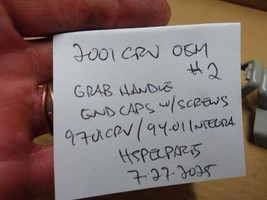 2001 CRV OEM
#2
GRAB HANDLE
END CAPS W/SCREWS
97-01 CRV / 94-01 INTEGRA
HSPECPARTS
7-27-2025